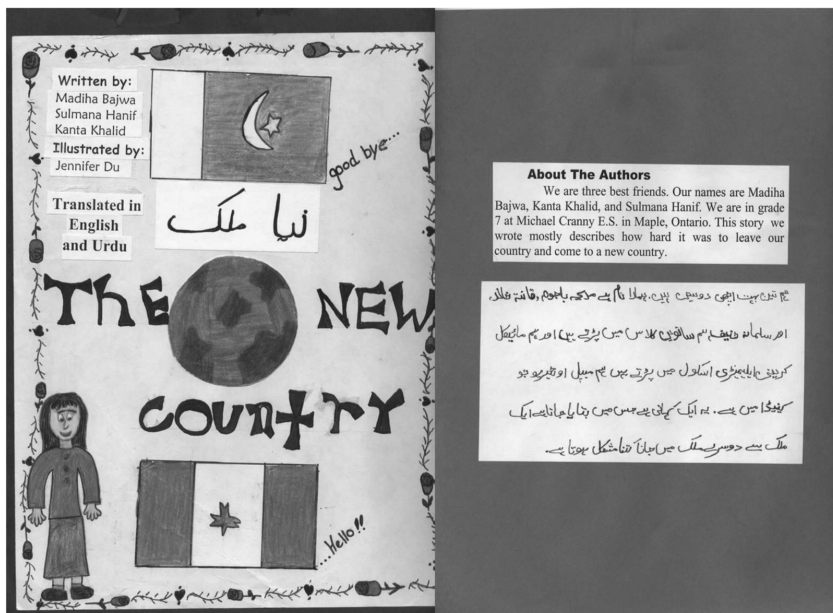 Written by:
Madiha Bajwa
Sulmana Hanif
Kanta Khalid
Illustrated by:
Jennifer Du
good bye...
Translated in
English
and Urdu
نیا ملک
The New
Country
...Hello!!
About The Authors
We are three best friends. Our names are Madiha
Bajwa, Kanta Khalid, and Sulmana Hanif. We are in grade
7 at Michael Cranny E.S. in Maple, Ontario. This story we
wrote mostly describes how hard it was to leave our
country and come to a new country.
ہم تین بہت اچھی دوستیں ہیں. ہمارا نام ہے مدیحہ باجوہ,
اور سلمانہ حنیف ہم ساتویں کلاس میں پڑتے ہیں اور ہم مائیکل
کرینی ایلیمنٹری اسکول میں پڑتے ہیں ہم میپل اونٹیریو جو
کینیڈا میں ہے. یہ ایک کہانی ہے جس میں بتایا جاتا ہے ایک
ملک سے دوسرے ملک میں جانا کتنا مشکل ہوتا ہے.